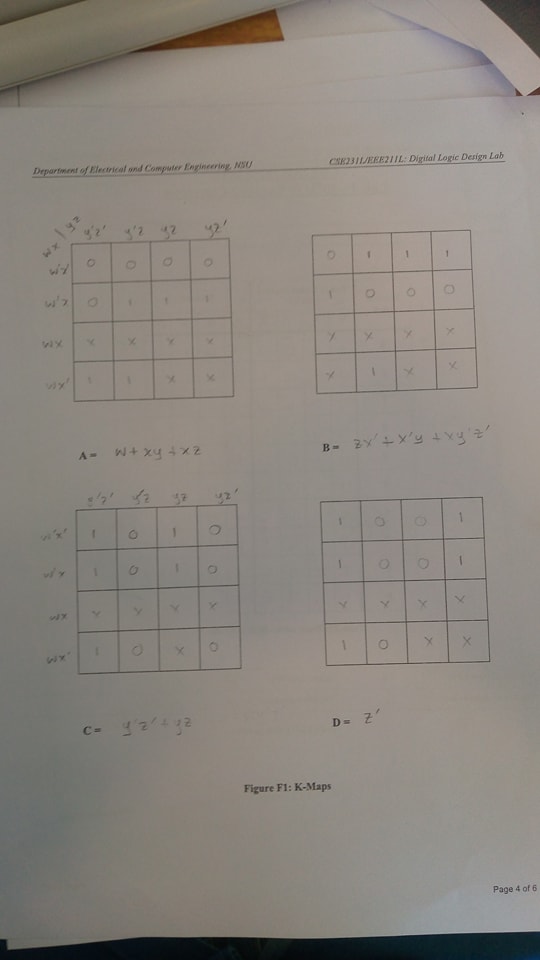 Department of Electrical and Computer Engineering, NSU
CSE231L/EEE211L: Digital Logic Design Lab
wx / yz y'z' y'z yz yz'
w'x' 0 0 0 0
w'x 0 1 1 1
wx x x x x
wx' 1 1 x x
0 1 1 1
1 0 0 0
x x x x
x 1 x x
A = w + xy + xz
B = zx' + x'y + xy'z'
y'z' y'z yz yz'
w'x' 1 0 1 0
w'x 1 0 1 0
wx x x x x
wx' 1 0 x 0
1 0 0 1
1 0 0 1
x x x x
1 0 x x
C = y'z' + yz
D = z'
Figure F1: K-Maps
Page 4 of 6